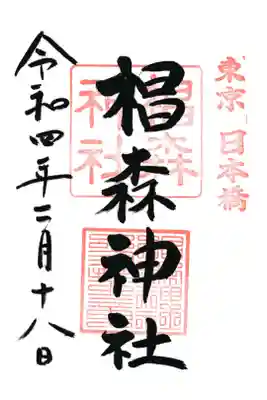 東京 日本橋
椙森神社
椙森
神社
令和四年二月十八日